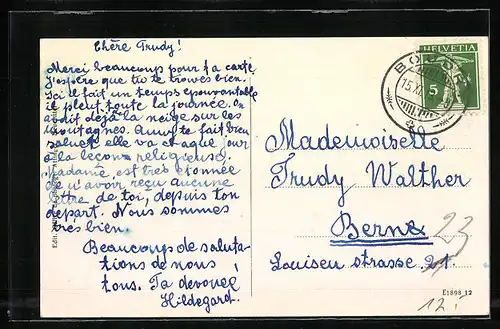 Chère Trudy!
Merci beaucoup pour ta carte
J'espère que tu te trouves bien.
Ici il fait un temps épouvantable
il pleut toute la journée. On
voit déjà la neige sur les
montagnes. Anny te fait bien
saluer elle va chaque jour
à la leçon religieuse.
Madame est très étonnée
de n'avoir reçu aucune
lettre de toi, depuis ton
départ. Nous sommes
très bien.
Beaucoup de saluta-
tions de nous
tous. Ta dévouée
Hildegard.
HELVETIA
5
15.XI
Mademoiselle
Trudy Walther
Berne
Louisen strasse 21.
23
E1898 12
12.